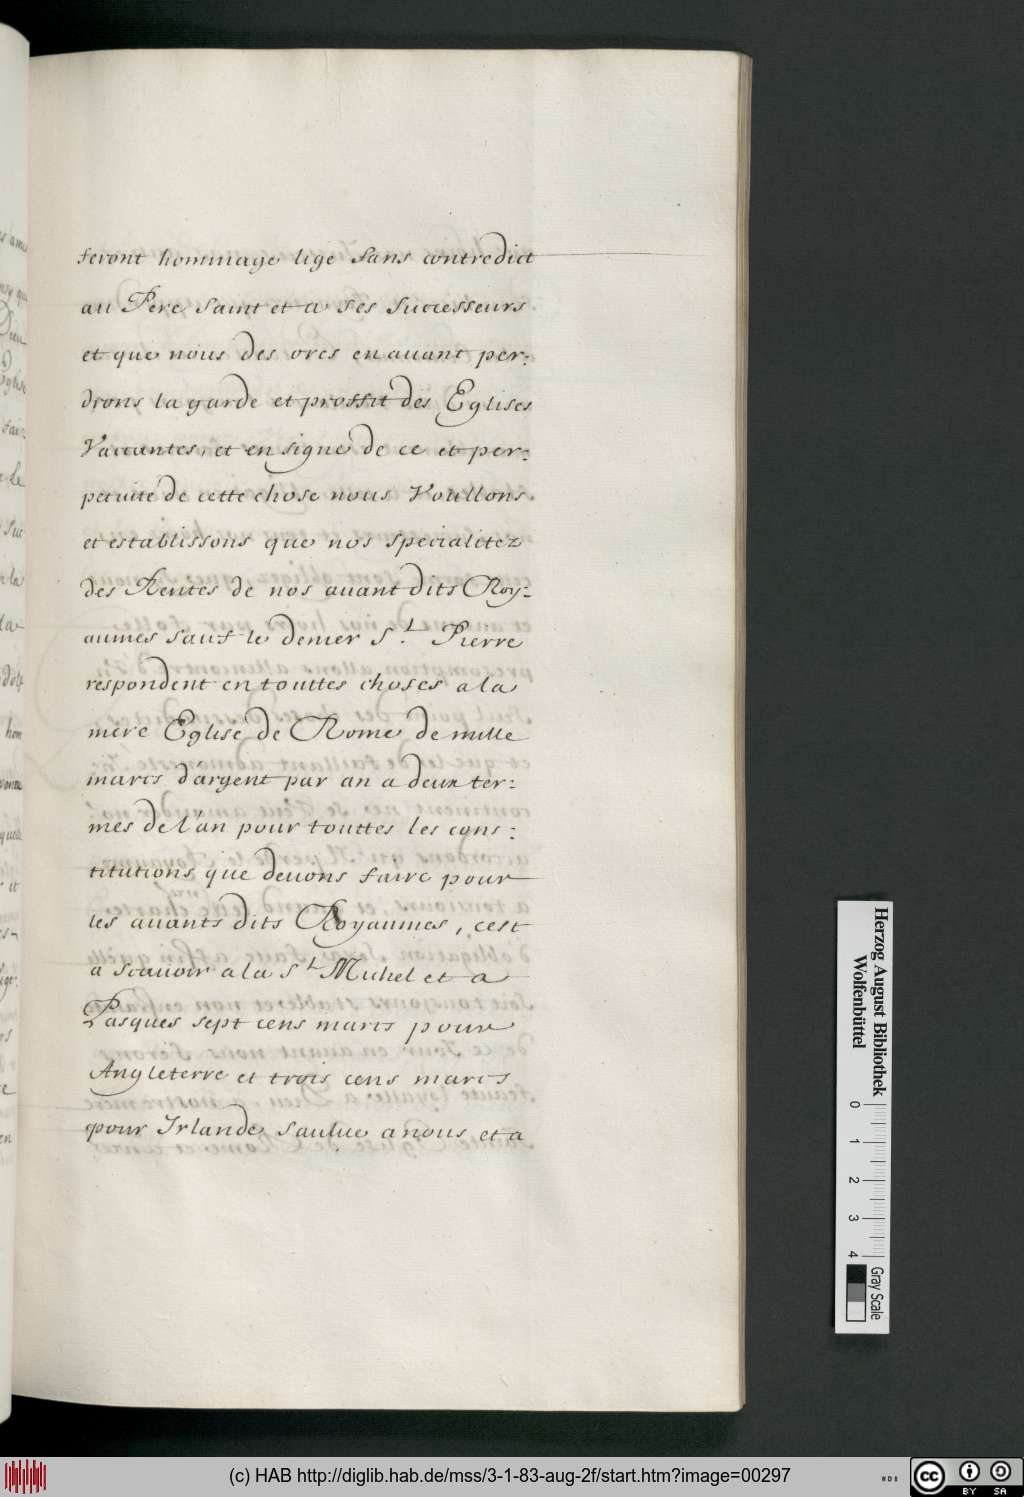 feront hommage lige sans contredict
au Pere Saint et a ses successeurs
et que nous des ores en auant per:
drons la garde et proffit des Eglises
Vaccantes, et en signe de ce et per:
petuité de cette chose nous Voullons
et establissons que nos specialitez
des Rentes de nos auant dits Roy:
aumes sauf le denier S.t Pierre
respondent en touttes choses a la
mere Eglise de Rome de mille
marcs d'argent par an a deux ter:
mes de l'an pour touttes les cons:
titutions que deuons faire pour
les auants dits Royaumes, cest
a scauoir a la St Michel et a
Pasques sept cens marcs pour
Angleterre et trois cens marcs
pour Irlande saulue a nous et a
Herzog August Bibliothek
Wolfenbüttel
0 1 2 3 4
Gray Scale
(c) HAB http://diglib.hab.de/mss/3-1-83-aug-2f/start.htm?image=00297
cc BY SA